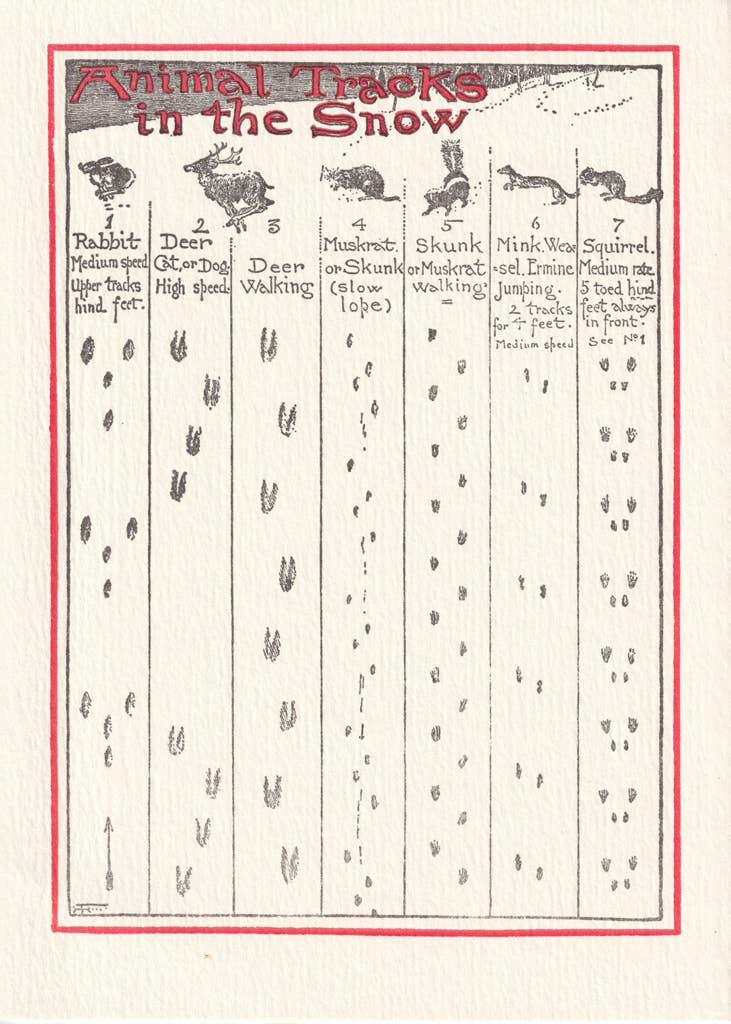 Animal Tracks
in the Snow
1
Rabbit
Medium speed
Upper tracks
hind feet.
2
Deer
Cat, or Dog
High speed.
3
Deer
Walking
4
Muskrat.
or Skunk
(slow
lope)
5
Skunk
or Muskrat
Walking
6
Mink. Wea-
-sel. Ermine
Jumping.
2 tracks
for 4 feet.
Medium speed
7
Squirrel.
Medium rate.
5 toed hind
feet always
in front.
See No 1